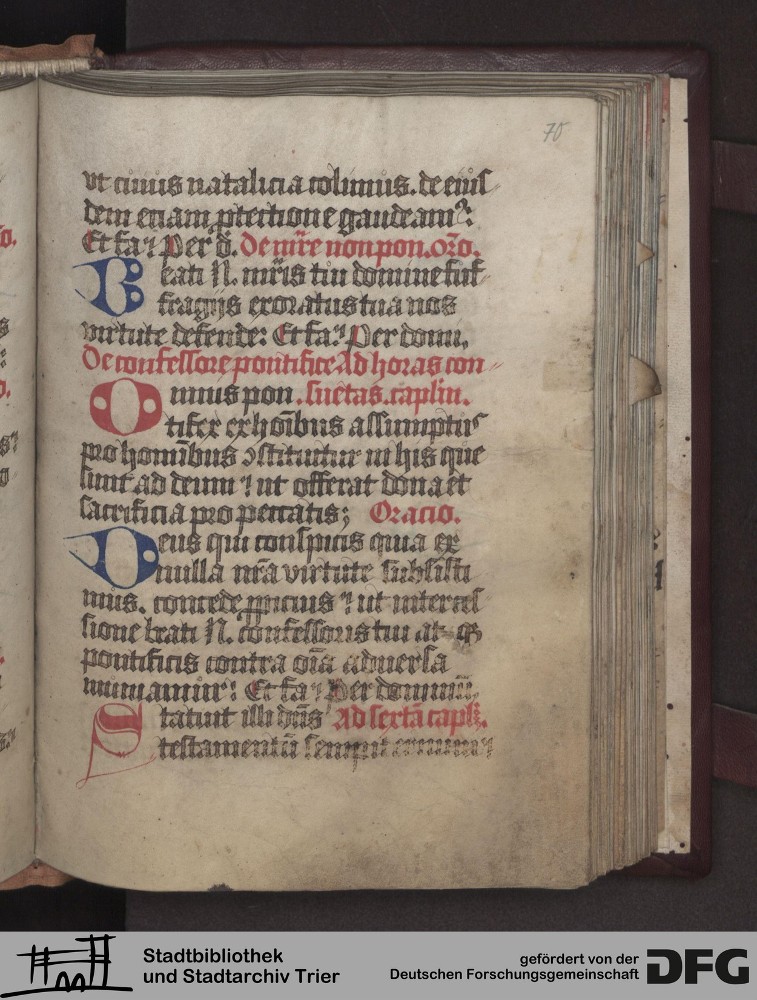 70
vt cuius natalicia colimus. de eius
dem eciam ptectione gaudeamꝰ:
Et fa⁊ Per d. De mr̄e non pon. oro.
Beati N. mr̄is tui domine suf
fragijs exoratus tua nos
virtute defende: Et fa⁊ Per domi.
De confessore pontifice Ad horas con
Omnis pon. suetas. caplm.
tifex ex hoībus assumptus
pro homībus ↄstituitur in his que
sunt ad deum ⁊ ut offerat dona et
sacrificia pro peccatis; Oracio.
Deus qui conspicis quia ex
nulla nr̄a virtute subsisti
mus. concede ꝓpicius ⁊ ut interces
sione beati N. confessoris tui at
pontificis contra oīa aduersa
muniamur: Et fa⁊ Per dominū.
Statuit illi dn̄s Ad sextā caplm.
testamentū sempit
Stadtbibliothek
und Stadtarchiv Trier
gefördert von der
Deutschen Forschungsgemeinschaft
DFG